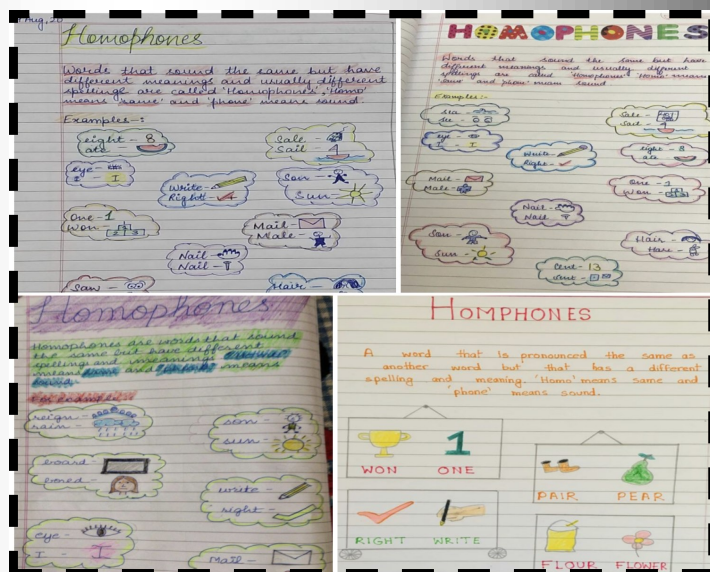 Aug, 20
Homophones
Words that sound the same but have
different meanings and usually different
spellings are called 'Homophones', 'Homo'
means 'same' and 'phone' means sound.
Examples-:
eight - 8
ate
Sale -
Sail -
eye -
I - I
Write -
Right -
Son -
Sun -
One - 1
Won -
Mail -
Male -
Nail -
Nail -
Saw -
Hair -
HOMOPHONES
Words that sound the same but have
different meanings and usually different
spellings are called 'Homophones' 'Homo' means
'same' and 'phone' means sound
Examples:-
Sea -
See -
Sale -
Sail -
eye -
I I
Write -
Right -
eight - 8
ate
Mail -
Male -
One - 1
Won -
Nail -
Nail -
Son -
Sun -
Hair -
Hare -
Cent - 13
Sent -
Homophones
Homophones are words that sound
the same but have different
spellings and meanings
means and means
For examples
reign -
rain -
son -
sun -
board -
bored -
write -
right -
eye -
I - I
Mail -
HOMPHONES
A word that is pronounced the same as
another word but that has a different
spelling and meaning. 'Homo' mems same and
'phone' means sound.
1
WON ONE
PAIR PEAR
RIGHT WRITE
FLOUR FLOWER